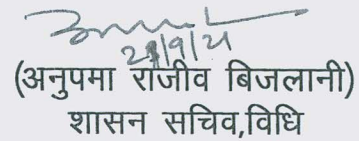 21/9/21
(अनुपमा राजीव बिजलानी)
शासन सचिव,विधि